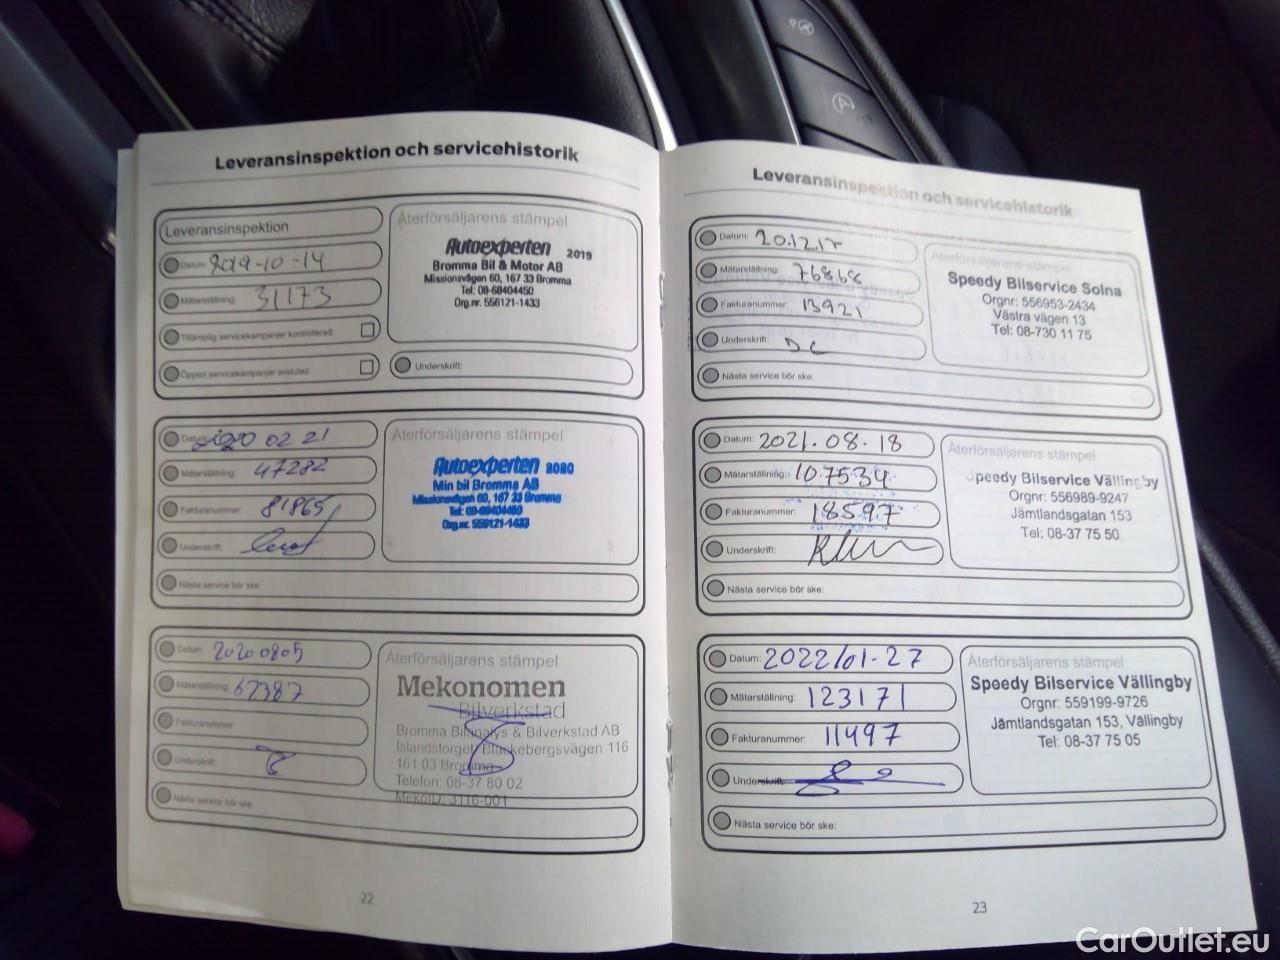 Leveransinspektion och servicehistorik
Leveransinspektion
Datum: 2019-10-14
Mätarställning: 31173
Tillämplig servicekampanjer kontrollerad:
Öppen servicekampanjer avslutad:
Återförsäljarens stämpel
Autoexperten 2019
Bromma Bil & Motor AB
Missionsvägen 60, 167 33 Bromma
Tel: 08-68404450
Org.nr. 556121-1433
Underskrift:
Datum: 2020 02 21
Mätarställning: 47282
Fakturanummer: 81865
Underskrift:
Nästa service bör ske:
Återförsäljarens stämpel
Autoexperten 2020
Min bil Bromma AB
Missionsvägen 60, 167 33 Bromma
Tel: 08-68404450
Org.nr. 556121-1433
Datum: 20200805
Mätarställning: 62387
Fakturanummer:
Underskrift:
Nästa service bör ske:
Återförsäljarens stämpel
Mekonomen
Bilverkstad
Bromma Bilanalys & Bilverkstad AB
Islandstorget/Blackebergsvägen 116
161 03 Bromma
Telefon: 08-37 80 02
MekoID: 3116-001
22
Leveransinspektion och servicehistorik
Datum: 20.12.17
Mätarställning: 76868
Fakturanummer: 13921
Underskrift: DC
Nästa service bör ske:
Återförsäljarens stämpel
Speedy Bilservice Solna
Orgnr: 556953-2434
Västra vägen 13
Tel: 08-730 11 75
Datum: 2021.08.18
Mätarställning: 107534
Fakturanummer: 18597
Underskrift:
Nästa service bör ske:
Återförsäljarens stämpel
Speedy Bilservice Vällingby
Orgnr: 556989-9247
Jämtlandsgatan 153
Tel: 08-37 75 50
Datum: 2022/01-27
Mätarställning: 123171
Fakturanummer: 11497
Underskrift:
Nästa service bör ske:
Återförsäljarens stämpel
Speedy Bilservice Vällingby
Orgnr: 559199-9726
Jämtlandsgatan 153, Vällingby
Tel: 08-37 75 05
23
CarOutlet.eu